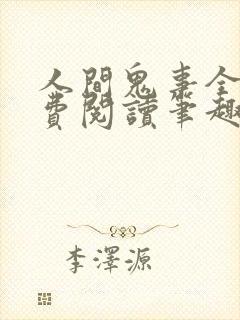 人間鬼事全
費閱讀筆趣
李澤源